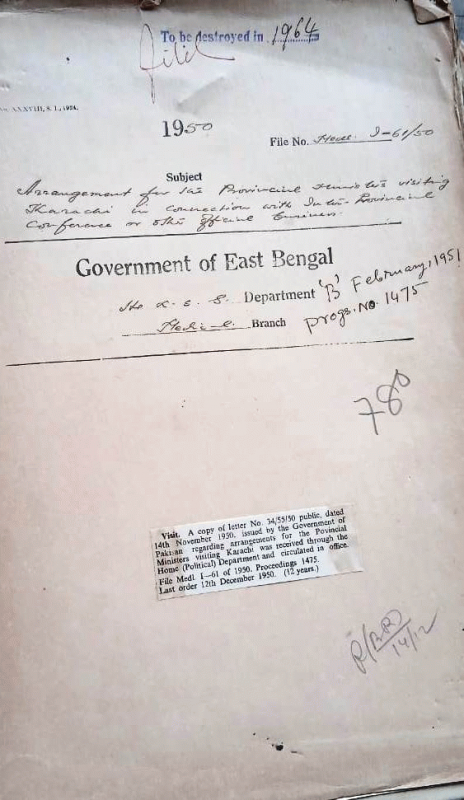 To be destroyed in 1964
filed
No. XXXVIII, S. I., 1924.
1950
File No. Medl. I-61/50
Subject
Arrangement for the Provincial Ministers visiting
Karachi in connection with Inter-Provincial
Conference or other official business.
Government of East Bengal
Department 'B' February, 1951
Medical Branch progs. No. 1475
780
Visit. A copy of letter No. 34/55/50 public, dated
14th November 1950, issued by the Government of
Pakistan regarding arrangements for the Povincial
Ministers visiting Karachi was received through the
Home (Political) Department and circulated in office.
File Medl. I—61 of 1950. Proceedings 1475.
Last order 12th December 1950. (12 years.)
14/12